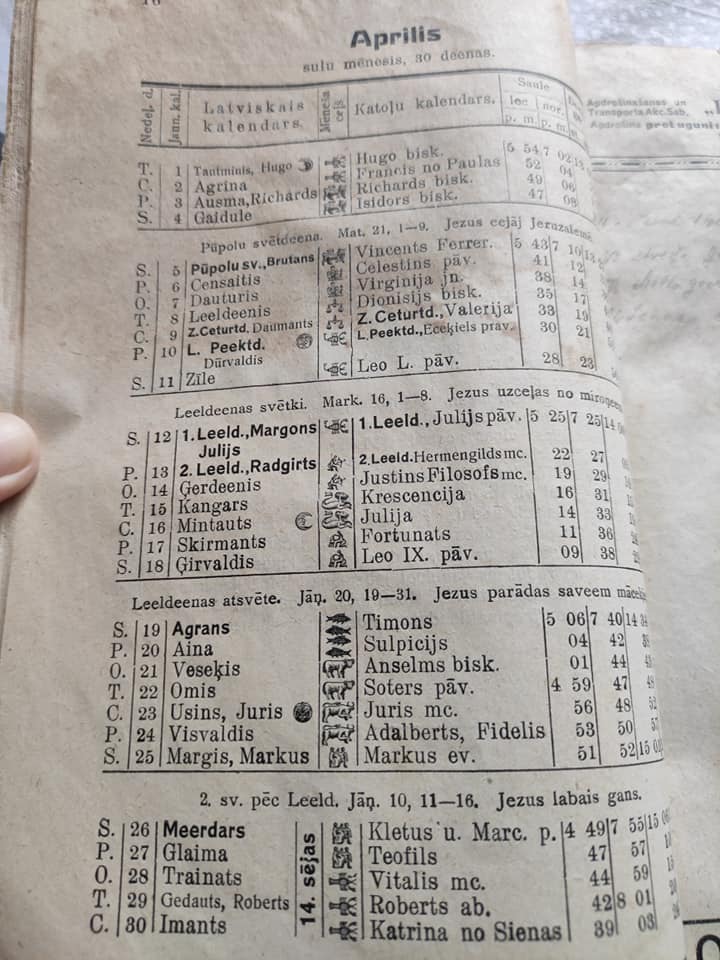 Aprilis
sulu mēnesis, 30 deenas.
Nedeļ. d. Jaun. kal. Latviskais kalendars. Mēneša ceļš Katoļu kalendars. Saule lec nor. p. m. p. m.
T. 1 Tautminis, Hugo Hugo bisk. 5 54 7 02
C. 2 Agrina Francis no Paulas 52 04
P. 3 Ausma, Richards Richards bisk. 49 06
S. 4 Gaidule Isidors bisk. 47 08
Pūpolu svētdeena. Mat. 21, 1—9. Jezus eejāj Jeruzalemē.
S. 5 Pūpolu sv., Brutans Vincents Ferrer. 5 43 7 10
P. 6 Censaitis Celestins pāv. 41 12
O. 7 Dauturis Virginija jn. 38 14
T. 8 Leeldeenis Dionisijs bisk. 35 17
C. 9 Z. Ceturtd. Daumants Z. Ceturtd., Valerija 33 19
P. 10 L. Peektd. Dūrvaldis L. Peektd., Eceķiels prav. 30 21
S. 11 Zīle Leo L. pāv. 28 23
Leeldeenas svētki. Mark. 16, 1—8. Jezus uzceļas no miroņeem
S. 12 1. Leeld., Margons Julijs 1. Leeld., Julijs pāv. 5 25 7 25
P. 13 2. Leeld., Radgirts 2. Leeld. Hermengilds mc. 22 27
O. 14 Ģerdeenis Justins Filosofs mc. 19 29
T. 15 Kangars Krescencija 16 31
C. 16 Mintauts Julija 14 33
P. 17 Skirmants Fortunats 11 36
S. 18 Ģirvaldis Leo IX. pāv. 09 38
Leeldeenas atsvēte. Jāņ. 20, 19—31. Jezus parādas saveem mācekļ
S. 19 Agrans Timons 5 06 7 40
P. 20 Aina Sulpicijs 04 42
O. 21 Veseķis Anselms bisk. 01 44
T. 22 Omis Soters pāv. 4 59 47
C. 23 Usins, Juris Juris mc. 56 48
P. 24 Visvaldis Adalberts, Fidelis 53 50
S. 25 Margis, Markus Markus ev. 51 52
2. sv. pēc Leeld. Jāņ. 10, 11—16. Jezus labais gans.
S. 26 Meerdars Kletus u. Marc. p. 4 49 7 55
P. 27 Glaima Teofils 47 57
O. 28 Trainats Vitalis mc. 44 59
T. 29 Gedauts, Roberts Roberts ab. 42 8 01
C. 30 Imants Katrina no Sienas 39 03
14. sējas
Apdrošinašanas un
Transporta Akc. Sab.
Apdrošina pret uguni